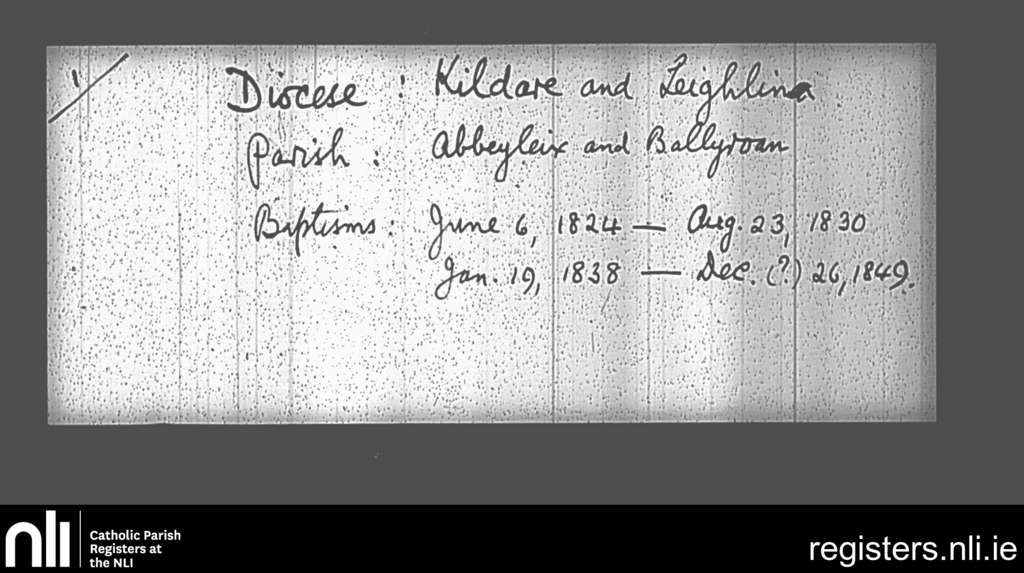 1/
Diocese : Kildare and Leighlin
Parish : Abbeyleix and Ballyroan
Baptisms : June 6, 1824 — Aug. 23, 1830
Jan. 19, 1838 — Dec. (?) 26, 1849.
nli
Catholic Parish
Registers at
the NLI
registers.nli.ie